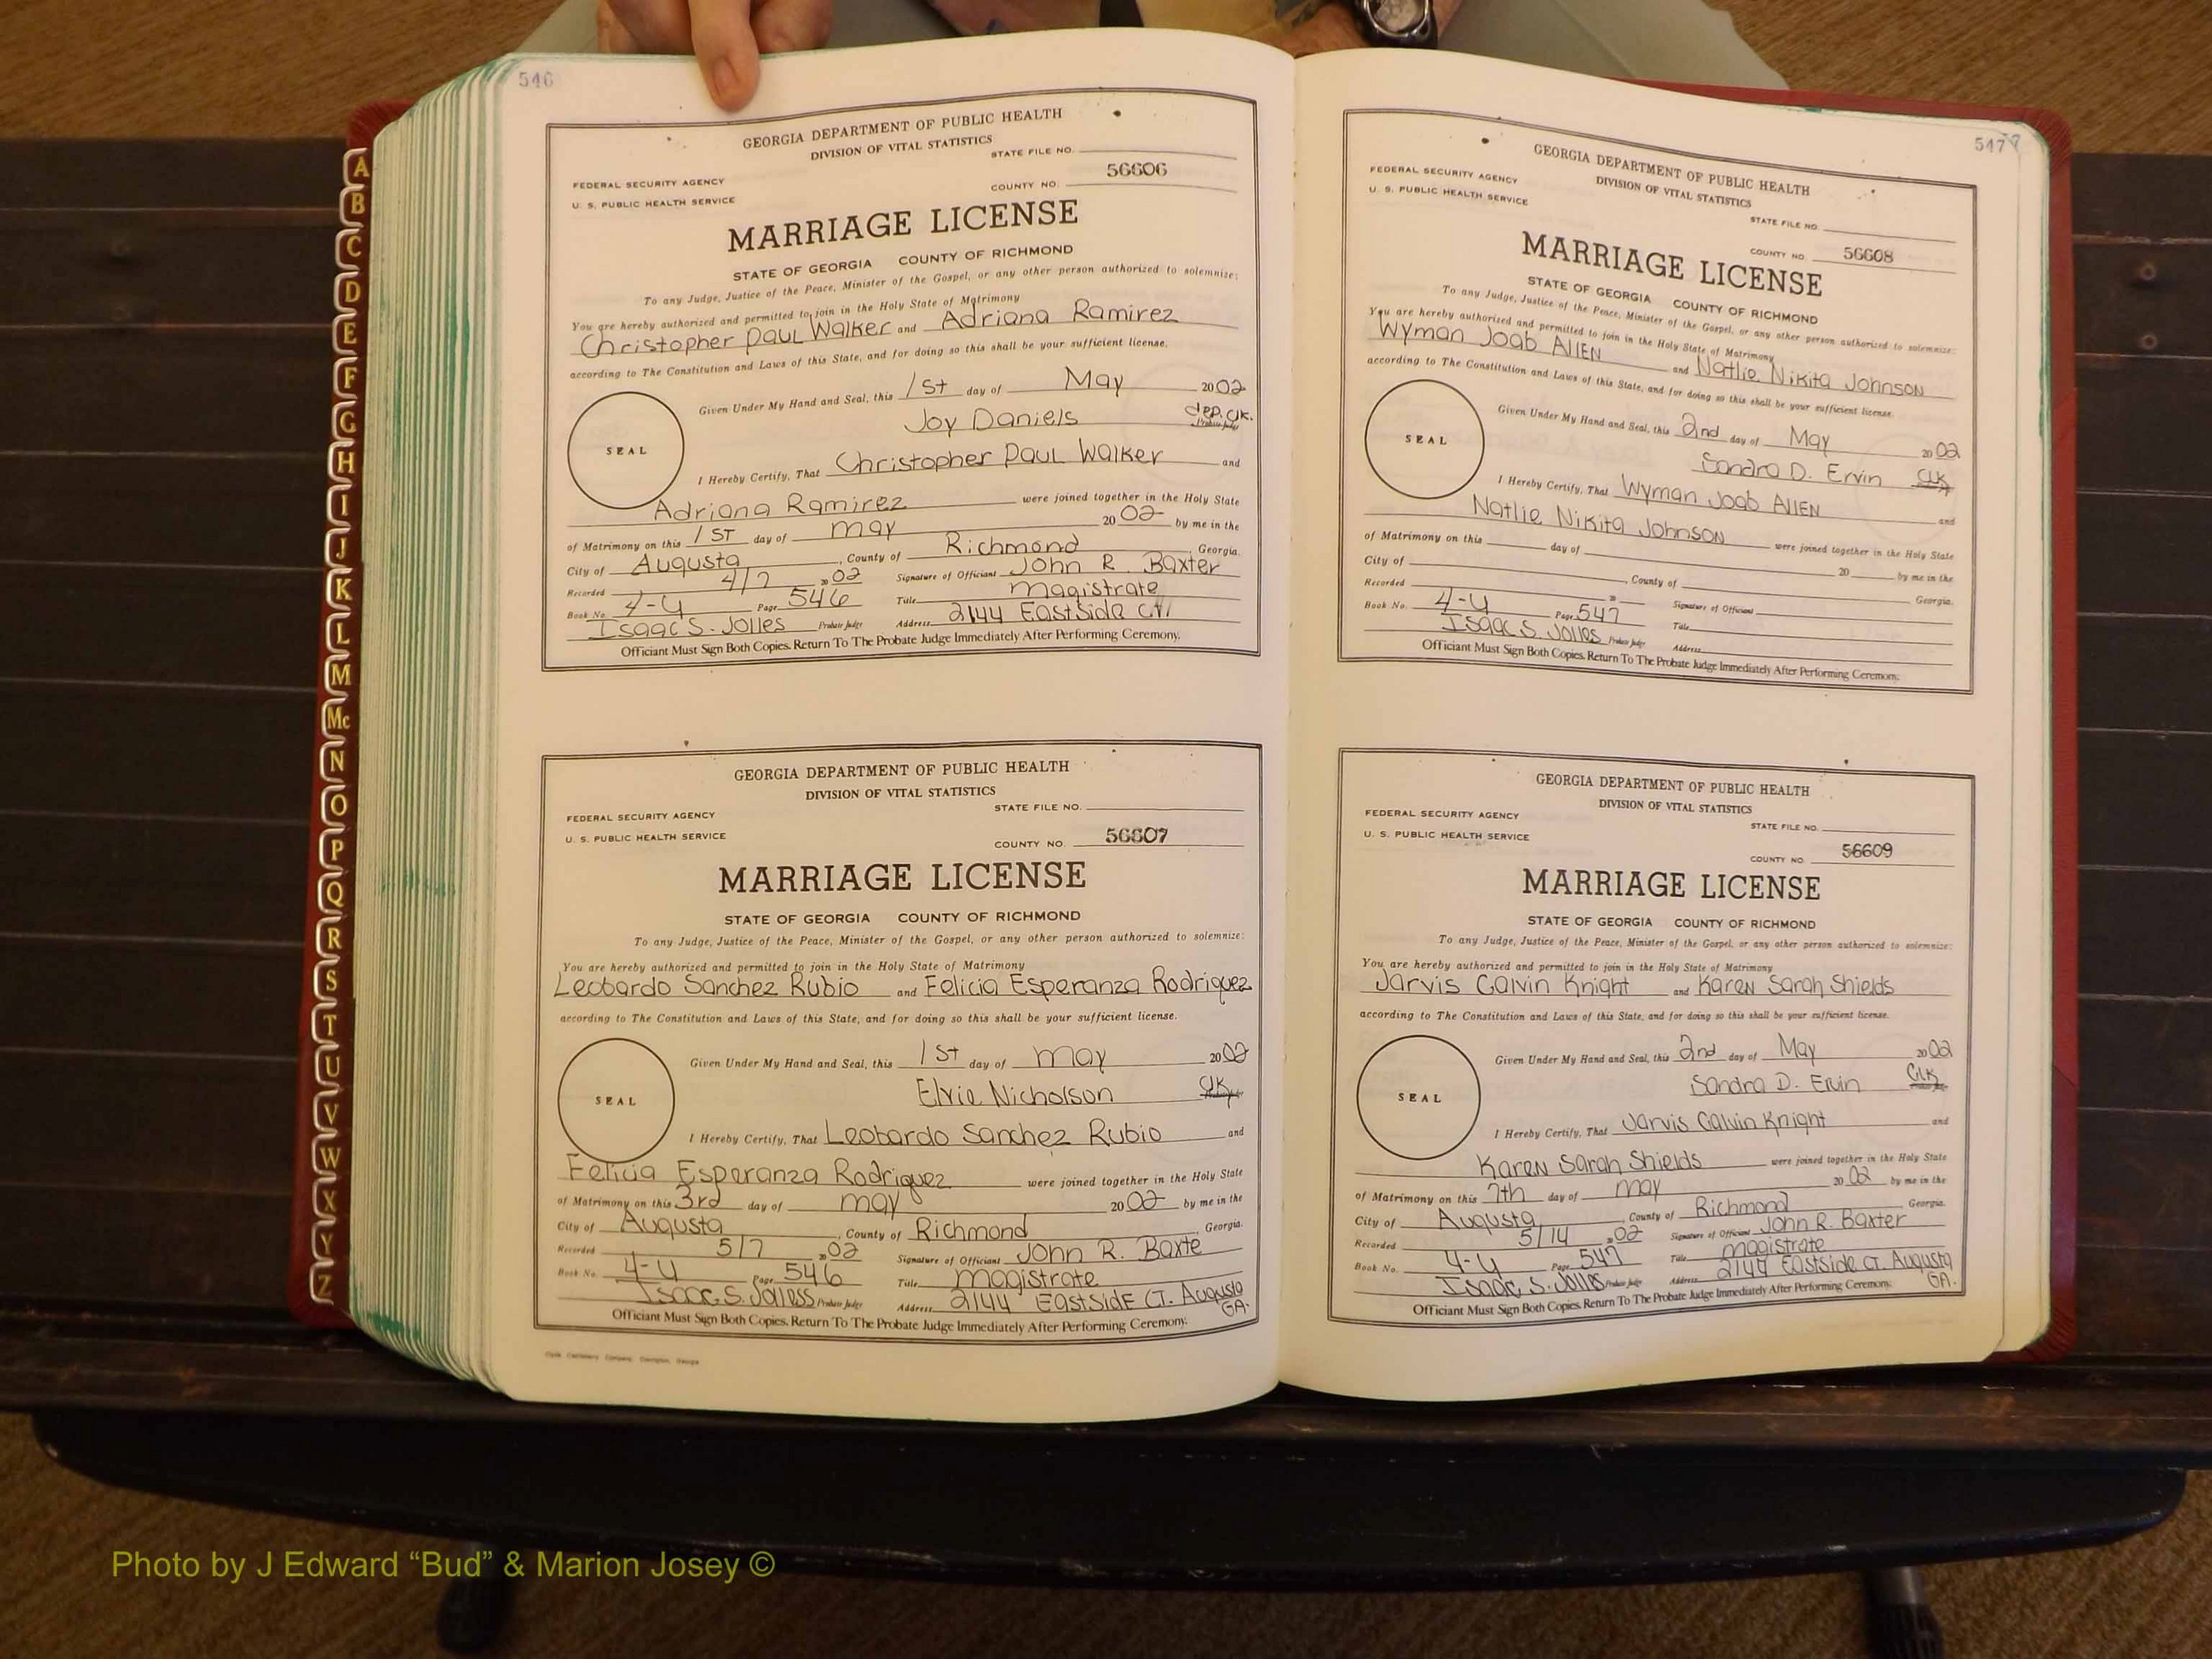 546
GEORGIA DEPARTMENT OF PUBLIC HEALTH
DIVISION OF VITAL STATISTICS
STATE FILE NO.
FEDERAL SECURITY AGENCY
U. S. PUBLIC HEALTH SERVICE
COUNTY NO. 56606
MARRIAGE LICENSE
STATE OF GEORGIA COUNTY OF RICHMOND
To any Judge, Justice of the Peace, Minister of the Gospel, or any other person authorized to solemnize:
You are hereby authorized and permitted to join in the Holy State of Matrimony
Christopher Paul Walker and Adriana Ramirez
according to The Constitution and Laws of this State, and for doing so this shall be your sufficient license.
Given Under My Hand and Seal, this 1st day of May 2002
Joy Daniels dep. Clk.
SEAL
I Hereby Certify, That Christopher Paul Walker and
Adriana Ramirez were joined together in the Holy State
of Matrimony on this 1ST day of may 2002 by me in the
City of Augusta, County of Richmond Georgia.
Recorded 4/7 2002 Signature of Officiant John R. Baxter
Book No. 4-U Page 546 Title magistrate
Isaac S. Jolles Probate Judge Address 2144 Eastside Ct.
Officiant Must Sign Both Copies. Return To The Probate Judge Immediately After Performing Ceremony.
GEORGIA DEPARTMENT OF PUBLIC HEALTH
DIVISION OF VITAL STATISTICS
STATE FILE NO.
FEDERAL SECURITY AGENCY
U. S. PUBLIC HEALTH SERVICE
COUNTY NO. 56607
MARRIAGE LICENSE
STATE OF GEORGIA COUNTY OF RICHMOND
To any Judge, Justice of the Peace, Minister of the Gospel, or any other person authorized to solemnize:
You are hereby authorized and permitted to join in the Holy State of Matrimony
Leobardo Sanchez Rubio and Felicia Esperanza Rodriquez
according to The Constitution and Laws of this State, and for doing so this shall be your sufficient license.
Given Under My Hand and Seal, this 1st day of may 2002
Elvie Nicholson Clk
SEAL
I Hereby Certify, That Leobardo Sanchez Rubio and
Felicia Esperanza Rodriquez were joined together in the Holy State
of Matrimony on this 3rd day of may 2002 by me in the
City of Augusta, County of Richmond Georgia.
Recorded 5/7 2002 Signature of Officiant John R. Baxte
Book No. 4-U Page 546 Title magistrate
Isaac S. Jolless Probate Judge Address 2144 EastsidE CT. Augusta GA.
Officiant Must Sign Both Copies. Return To The Probate Judge Immediately After Performing Ceremony.
547
GEORGIA DEPARTMENT OF PUBLIC HEALTH
DIVISION OF VITAL STATISTICS
FEDERAL SECURITY AGENCY
U. S. PUBLIC HEALTH SERVICE
STATE FILE NO.
COUNTY NO. 56608
MARRIAGE LICENSE
STATE OF GEORGIA COUNTY OF RICHMOND
To any Judge, Justice of the Peace, Minister of the Gospel, or any other person authorized to solemnize:
You are hereby authorized and permitted to join in the Holy State of Matrimony
Wyman Joab AllEN and Natlie Nikita Johnson
according to The Constitution and Laws of this State, and for doing so this shall be your sufficient license.
Given Under My Hand and Seal, this 2nd day of May 2002
Sandra D. Ervin CLK
SEAL
I Hereby Certify, That Wyman Joab AllEN and
Natlie Nikita Johnson were joined together in the Holy State
of Matrimony on this day of 20 by me in the
City of , County of Georgia.
Recorded 20 Signature of Officiant
Book No. 4-U Page 547 Title
Isaac S. Jolles Probate Judge Address
Officiant Must Sign Both Copies. Return To The Probate Judge Immediately After Performing Ceremony.
GEORGIA DEPARTMENT OF PUBLIC HEALTH
DIVISION OF VITAL STATISTICS
FEDERAL SECURITY AGENCY
STATE FILE NO.
U. S. PUBLIC HEALTH SERVICE
COUNTY NO. 56609
MARRIAGE LICENSE
STATE OF GEORGIA COUNTY OF RICHMOND
To any Judge, Justice of the Peace, Minister of the Gospel, or any other person authorized to solemnize:
You are hereby authorized and permitted to join in the Holy State of Matrimony
Jarvis Calvin Knight and Karen Sarah Shields
according to The Constitution and Laws of this State, and for doing so this shall be your sufficient license.
Given Under My Hand and Seal, this 2nd day of May 2002
Sandra D. Ervin CLK
SEAL
I Hereby Certify, That Jarvis Calvin Knight and
Karen Sarah Shields were joined together in the Holy State
of Matrimony on this 7th day of may 2002 by me in the
City of Augusta, County of Richmond Georgia.
Recorded 5/14 2002 Signature of Officiant John R. Baxter
Book No. 4-U Page 547 Title magistrate
Isaac S. Jolles Probate Judge Address 2144 Eastside CT. Augusta GA.
Officiant Must Sign Both Copies. Return To The Probate Judge Immediately After Performing Ceremony.
A
B
C
D
E
F
G
H
I
J
K
L
M
Mc
N
O
P
Q
R
S
T
U
V
W
X
Y
Z
Photo by J Edward “Bud” & Marion Josey ©